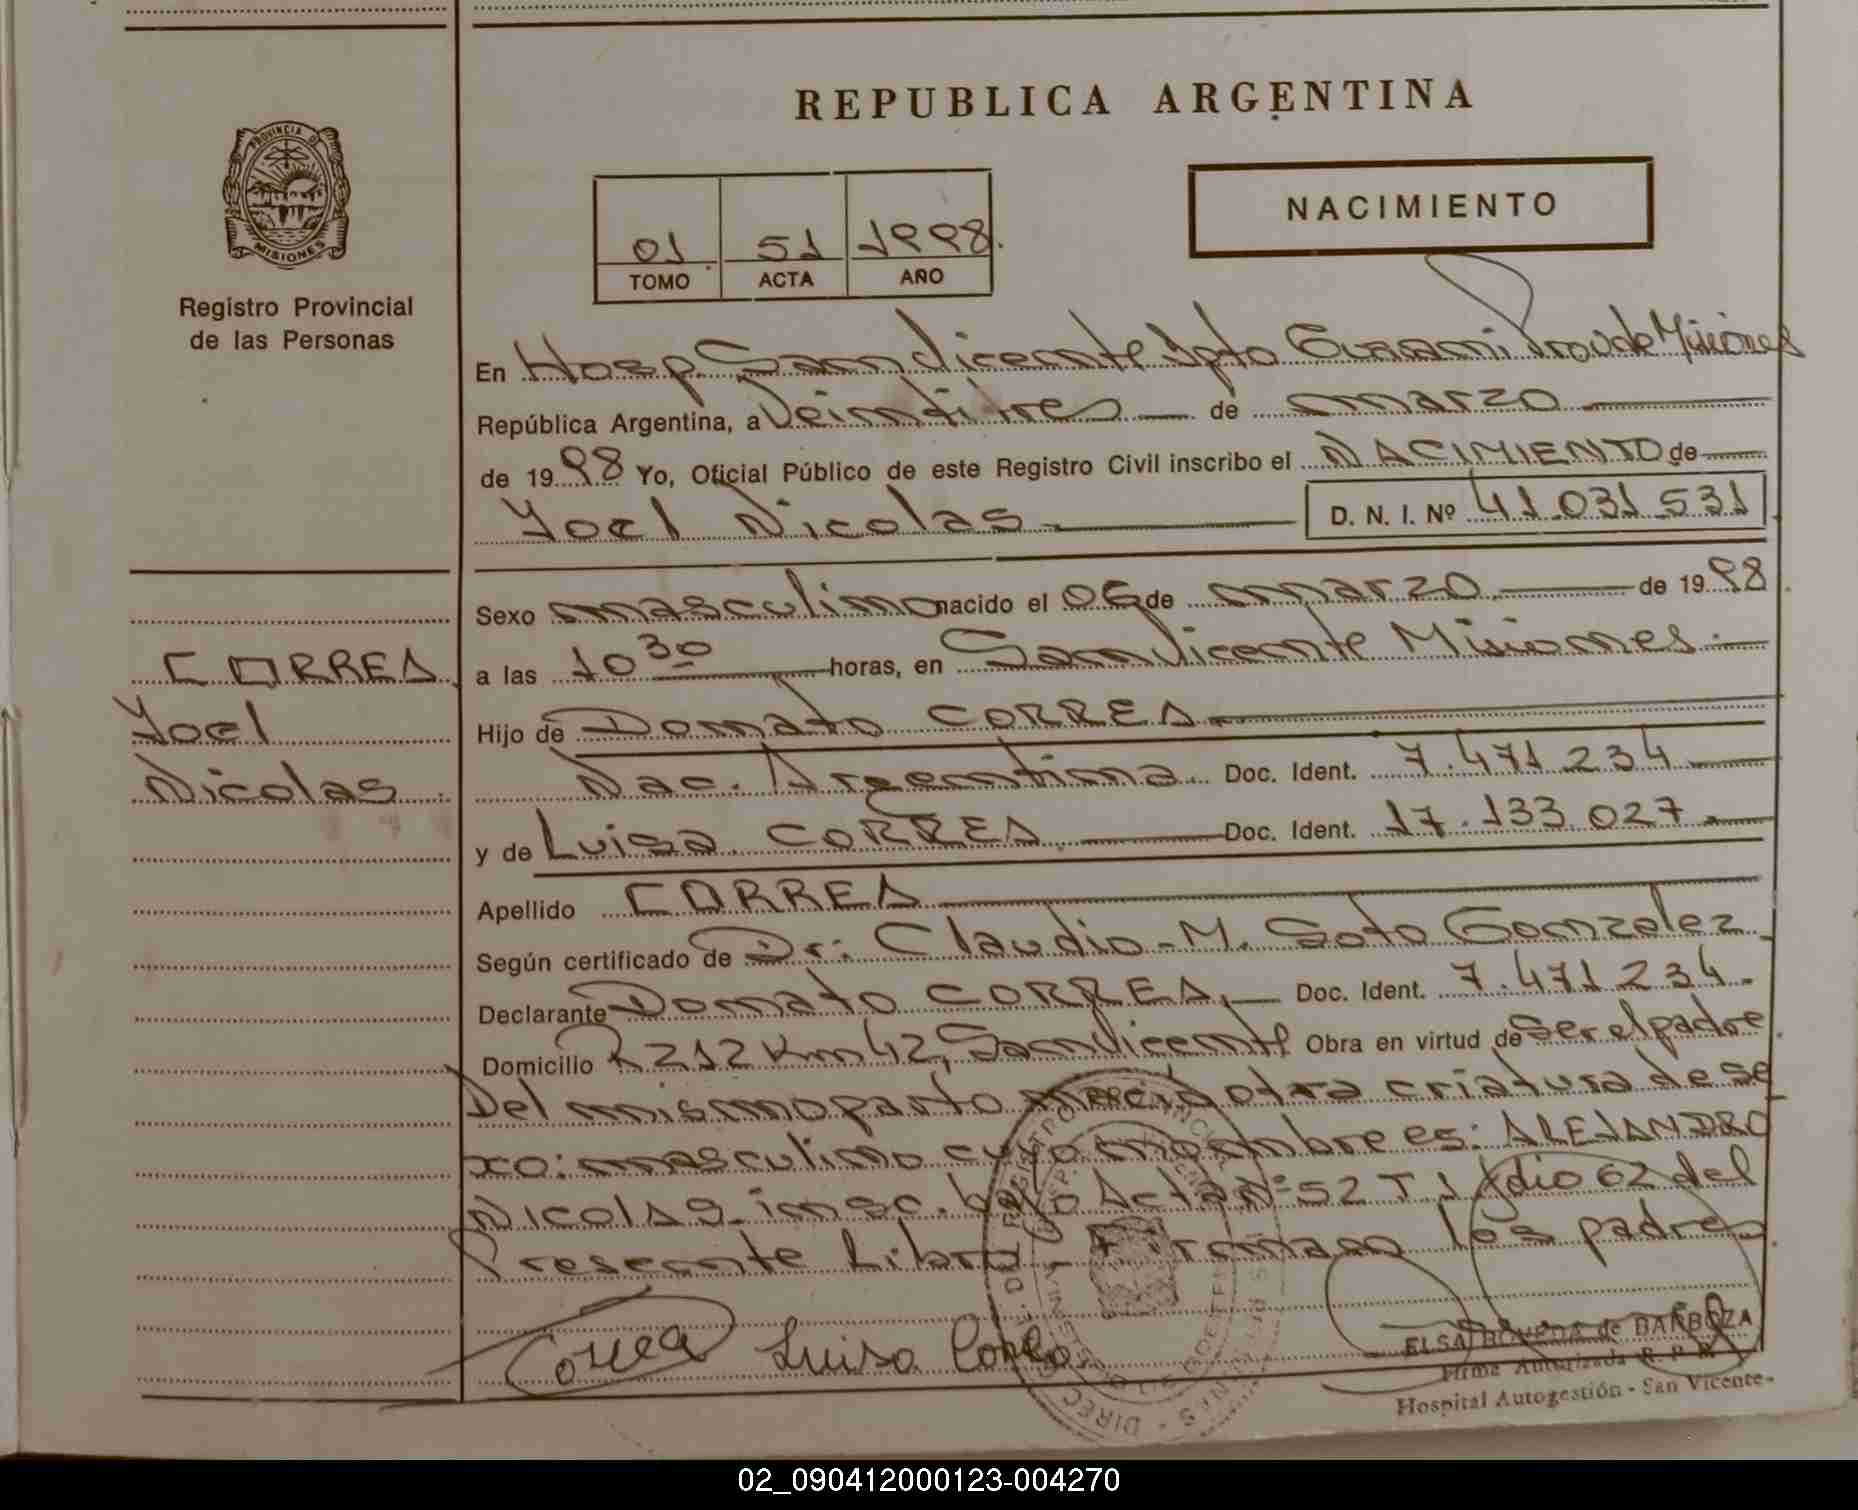 REPUBLICA ARGENTINA
PROVINCIA DE
MISIONES
Registro Provincial
de las Personas
01 51 1998.
TOMO ACTA AÑO
NACIMIENTO
En Hosp. San Vicente Dpto Guarani Prov de Misiones
República Argentina, a Veintitres de marzo
de 1998 Yo, Oficial Público de este Registro Civil inscribo el NACIMIENTO de
Yoel Nicolas D. N. I. Nº 41.031.531
Sexo masculino nacido el 06 de marzo de 1998
a las 10 30 horas, en San Vicente Misiones
Hijo de Donato CORREA
Nac. Argentina Doc. Ident. 7.471.234
y de Luisa CORREA Doc. Ident. 17.133.027
Apellido CORREA
Según certificado de Dr: Claudio M. Soto Gonzalez
Declarante Donato CORREA Doc. Ident. 7.471.234
Domicilio R 212 Km 42, San Vicente Obra en virtud de Ser el padre
Del mismo parto nació otra criatura de se
xo: masculino cuyo nombre es: ALEJANDRO
NICOLAS insc. bajo Acta Nº 52 T 1 folio 62 del
Presente Libro - Firman los padres
CORREA
Yoel
Nicolas
Correa Luisa Correa
ELSA de BARBOZA
Firma Autorizada R. P. P.
Hospital Autogestión - San Vicente-
02_090412000123-004270